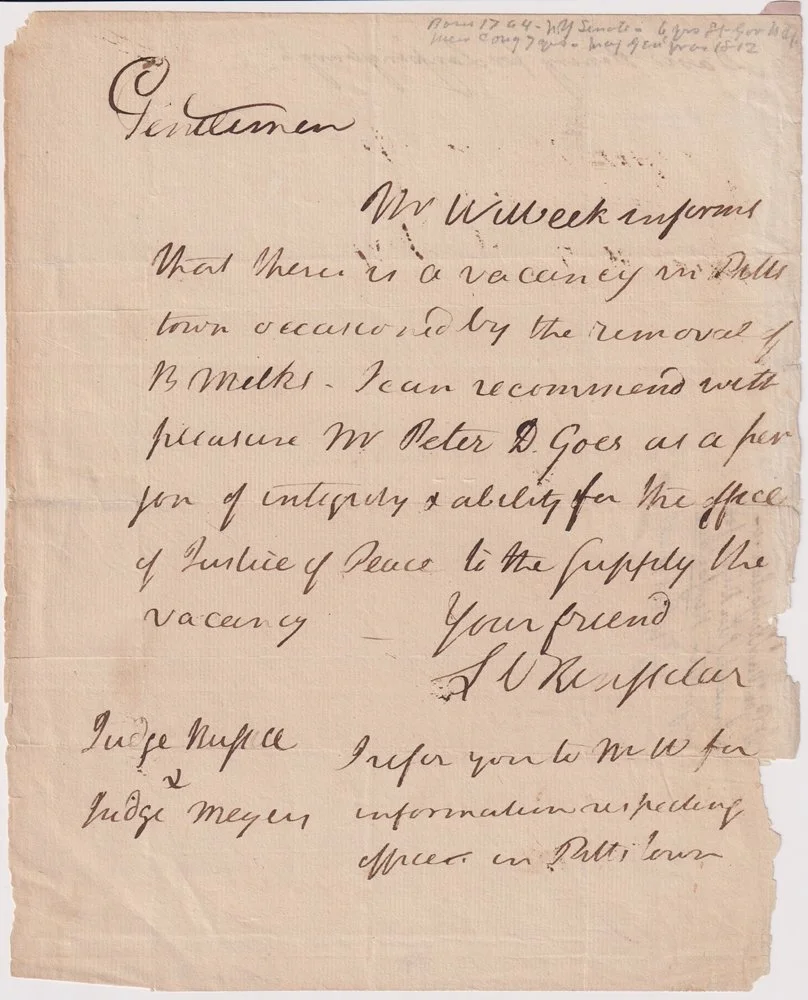 Born 1764 - NY Senate - 6 yrs Lt Gov
Mem Cong 7 yrs - Maj Genl War 1812
Gentlemen
Mr Wilbeek informs
that there is a vacancy in Pitts
town occasioned by the removal of
B Milks - I can recommend with
pleasure Mr Peter D. Goes as a per
son of integrity & ability for the office
of Justice of Peace to the supply the
vacancy - Your friend
S V Rensselaer
Judge Russell
&
Judge Meyers
I refer you to Mr W for
information respecting
offices in Pittstown